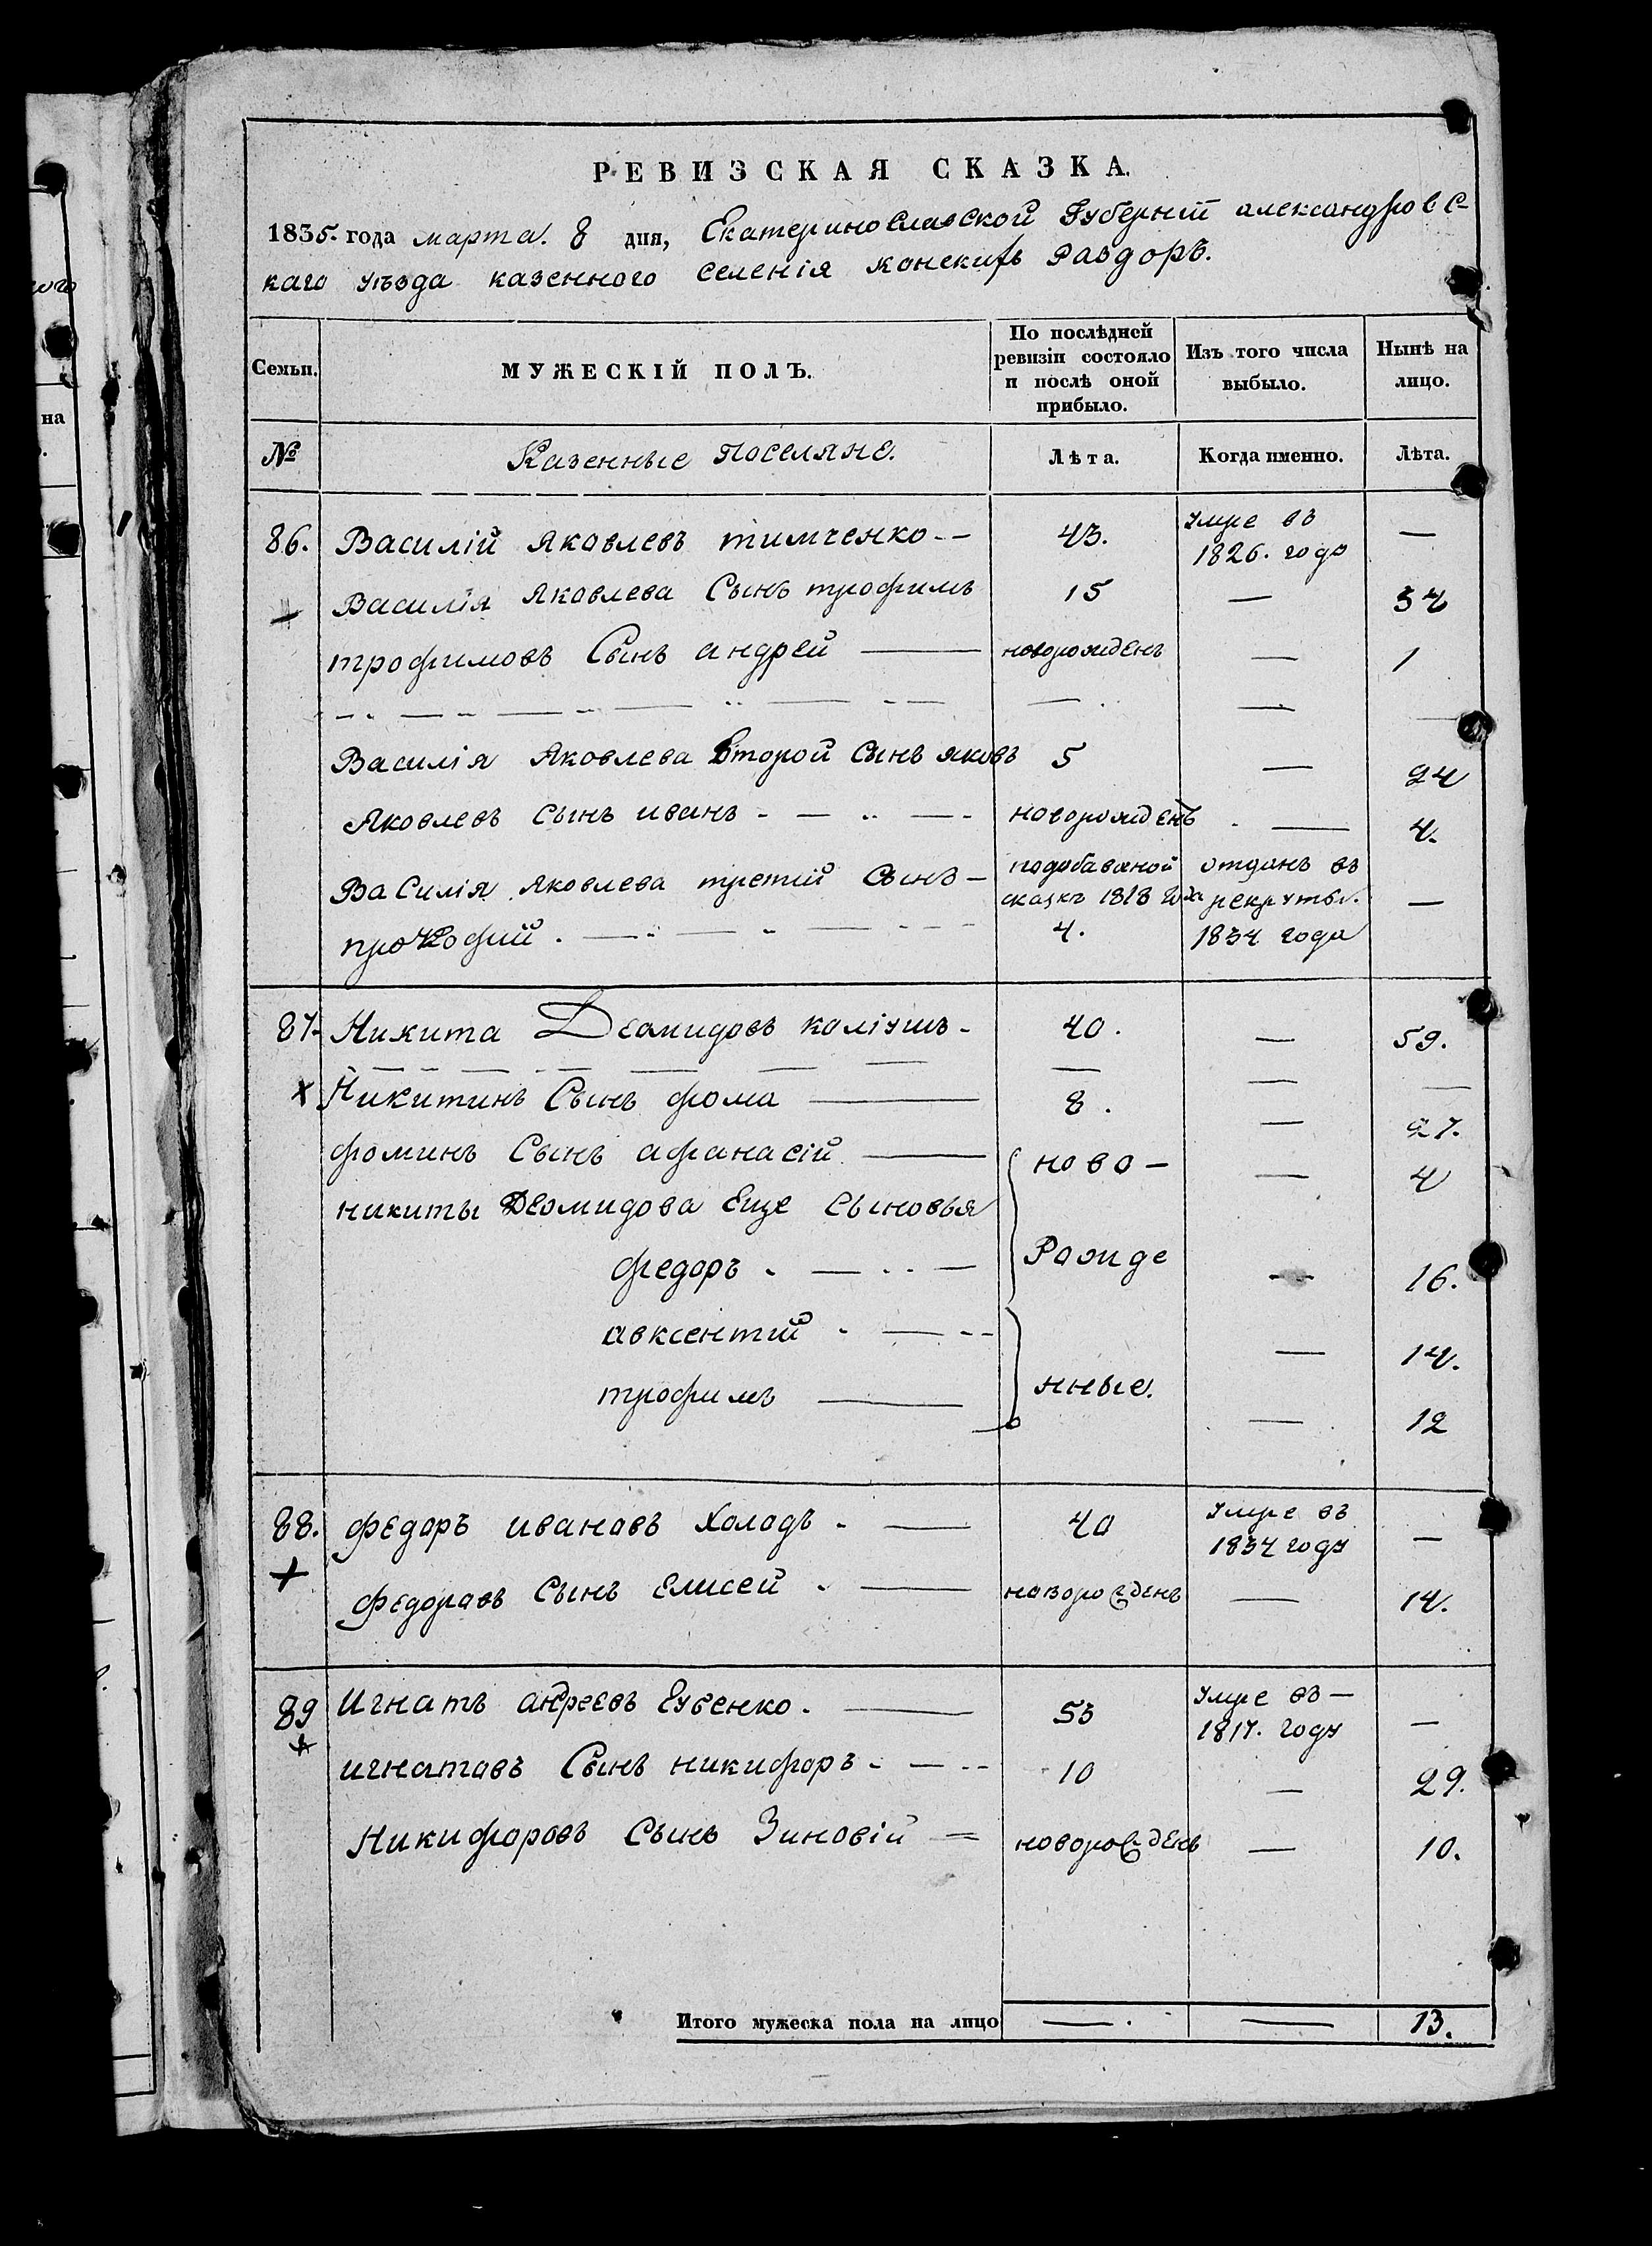 РЕВИЗСКАЯ СКАЗКА.
1835. года марта 8 дня, Екатеринославской Губерніи александровс-
каго уѣзда казенного селенія конскихъ Раздоръ.
Семьи.
МУЖЕСКІЙ ПОЛЪ.
По послѣдней ревизіи состояло и послѣ оной прибыло.
Изъ того числа выбыло.
Нынѣ на лицо.
№ Казенные поселяне. Лѣта. Когда именно. Лѣта.
86. Василій Яковлевъ тимченко -- 43. умре въ 1826. году —
Василія Яковлева Сынъ трофимъ 15 — 34
трофимовъ Сынъ андрей — новорожденъ — 1
Василія Яковлева Второй сынъ яковъ 5 — 24
Яковлевъ сынъ иванъ - — новорожденъ - — 4.
ВаСилія Яковлева третій Сынъ — подобавочной отданъ въ —
сказкѣ 1818 года рекруты.
прокофий . — 4. 1834 года
87. Никита Деомидовъ каліушъ - 40. — 59.
х Никитинъ Сынъ фома — 8. — 27.
фоминъ Сынъ афанасій — ново — — 4
никиты Деомидова Еще сыновья
федоръ . — Рожде — 16.
авксентий - — — 14.
трофимъ — нные. — 12
88. федоръ ивановъ Холодъ . — 40 Умре въ 1834 году —
федоравъ Сынъ Елисей . — новорожденъ — 14.
89 Игнатъ андреевъ Еувенко . — 53 Умре въ — 1817. году —
игнатовъ Сынъ никифоръ - — 10 — 29.
Никифоровъ Сынъ Зиновій = новорожденъ — 10.
Итого мужеска пола на лицо — . — 13.
на